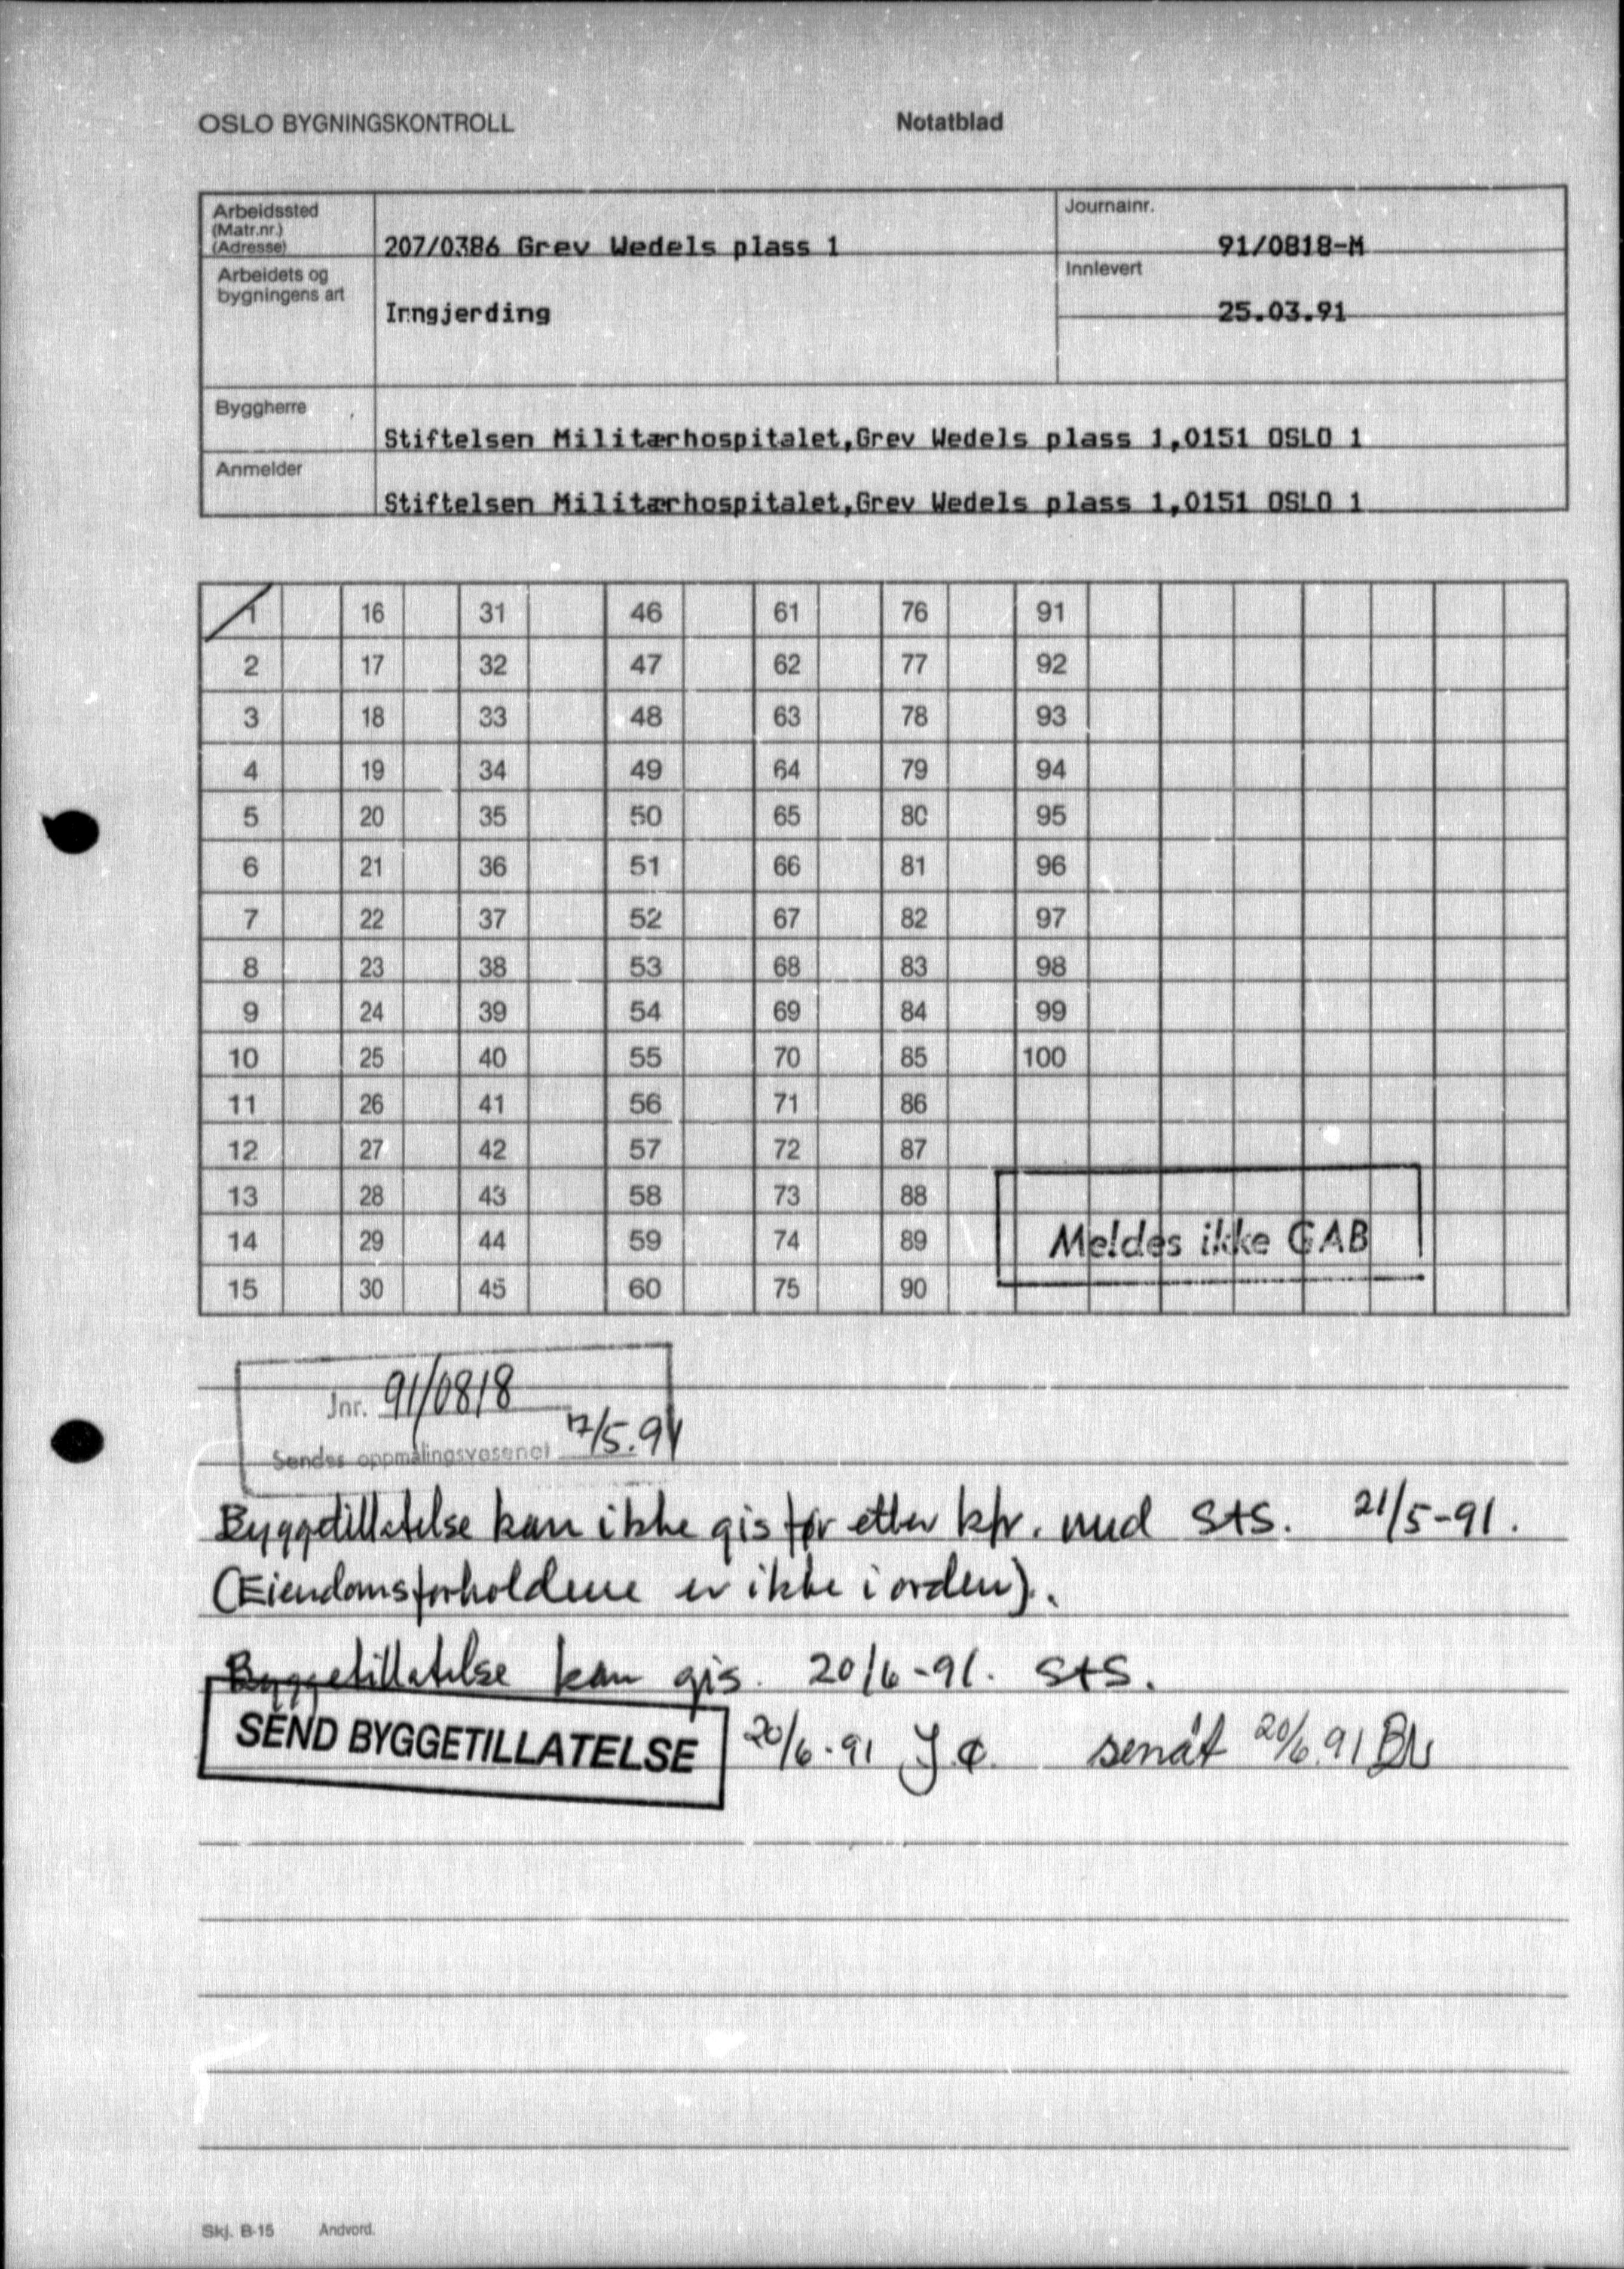 OSLO BYGNINGSKONTROLL Notatblad
Arbeidssted
(Matr.nr.)
(Adresse) 207/0386 Grev Wedels plass 1
Journalnr. 91/0818-M
Arbeidets og
bygningens art Inngjerding
Innlevert 25.03.91
Byggherre Stiftelsen Militærhospitalet,Grev Wedels plass 1,0151 OSLO 1
Anmelder Stiftelsen Militærhospitalet,Grev Wedels plass 1,0151 OSLO 1
1 16 31 46 61 76 91
2 17 32 47 62 77 92
3 18 33 48 63 78 93
4 19 34 49 64 79 94
5 20 35 50 65 80 95
6 21 36 51 66 81 96
7 22 37 52 67 82 97
8 23 38 53 68 83 98
9 24 39 54 69 84 99
10 25 40 55 70 85 100
11 26 41 56 71 86
12 27 42 57 72 87
13 28 43 58 73 88
14 29 44 59 74 89
15 30 45 60 75 90
Meldes ikke GAB
Jnr. 91/0818
Sendes oppmålingsvesenet
Byggetillatelse kan ikke gis før etter kfr. med StS. 21/5-91.
(Eiendomsforholdene er ikke i orden).
Byggetillatelse kan gis. 20/6-91. StS.
SEND BYGGETILLATELSE 20/6-91 sendt 20/6.91
Skj. B-15 Andvord.